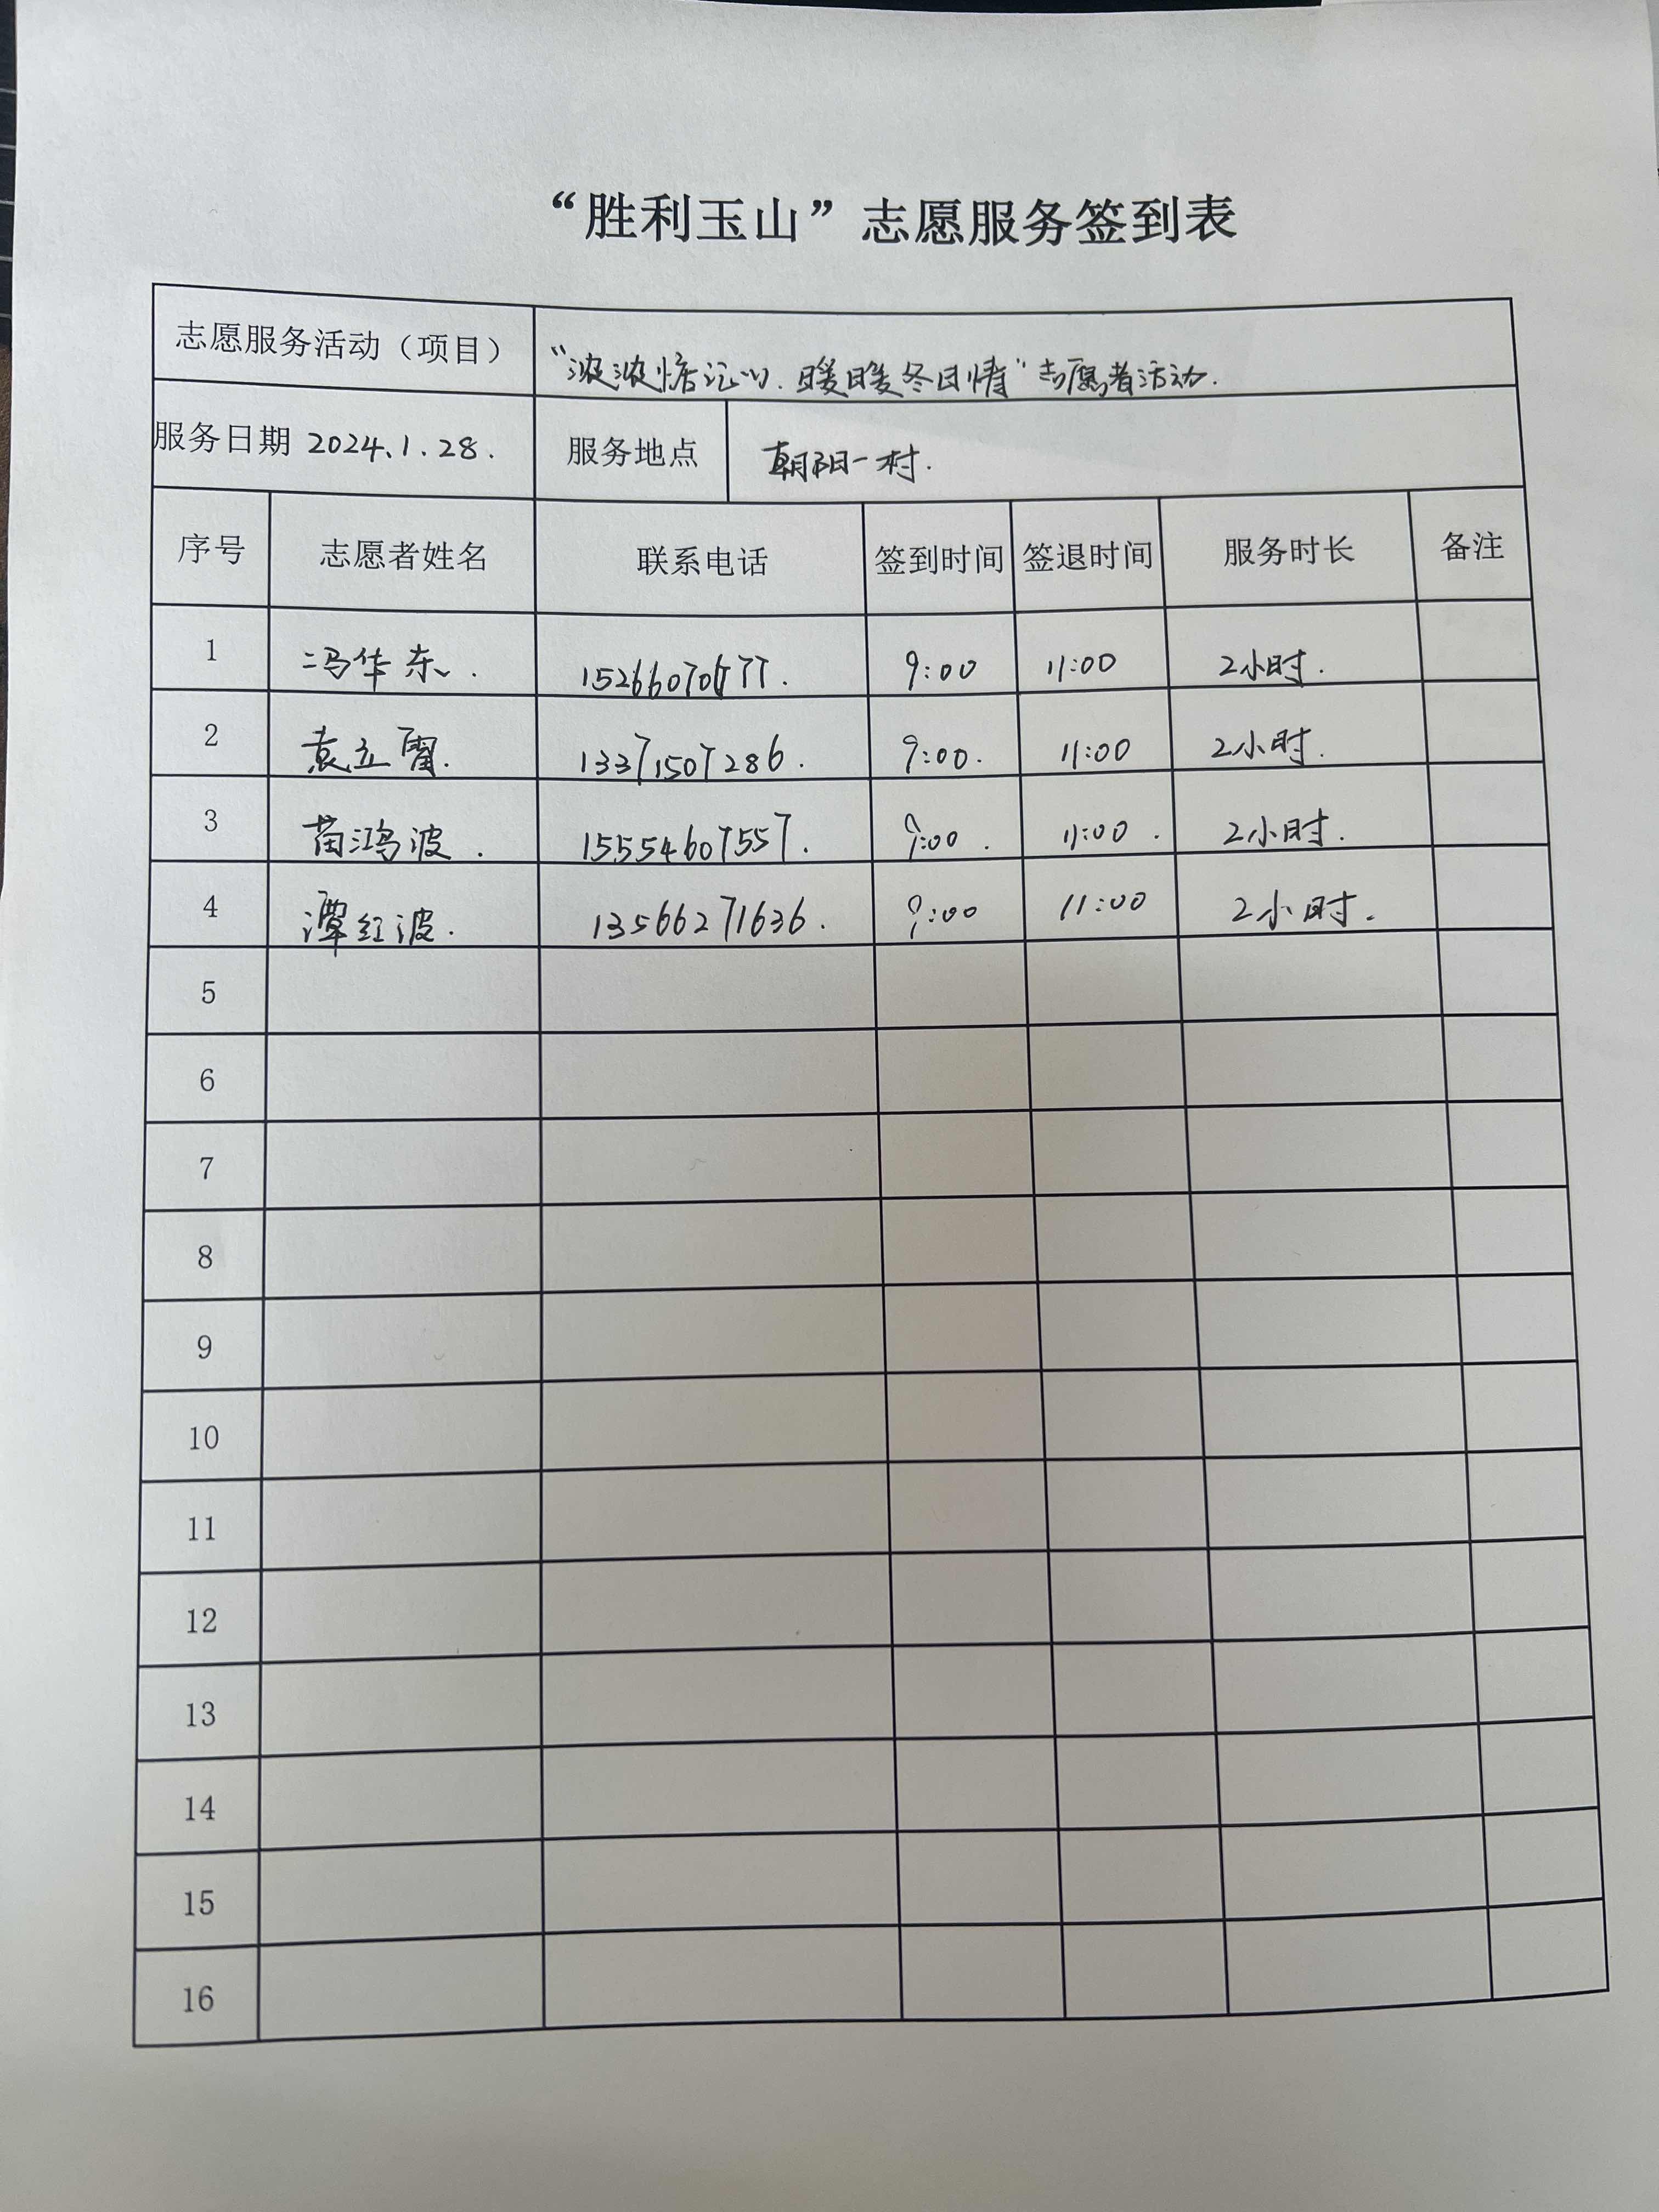 “胜利玉山”志愿服务签到表
志愿服务活动（项目） “浓浓惦记心、暖暖冬日情”志愿者活动.
服务日期 2024、1.28. 服务地点 朝阳一村.
序号 志愿者姓名 联系电话 签到时间 签退时间 服务时长 备注
1 冯华东. 9:00 11:00 2小时.
2 袁立霄. 13371507286. 9:00. 11:00 2小时.
3 苗鸿波. 15554607557. 9:00. 11:00. 2小时.
4 潭红波. 13566271636. 9:00 11:00 2小时.
5
6
7
8
9
10
11
12
13
14
15
16